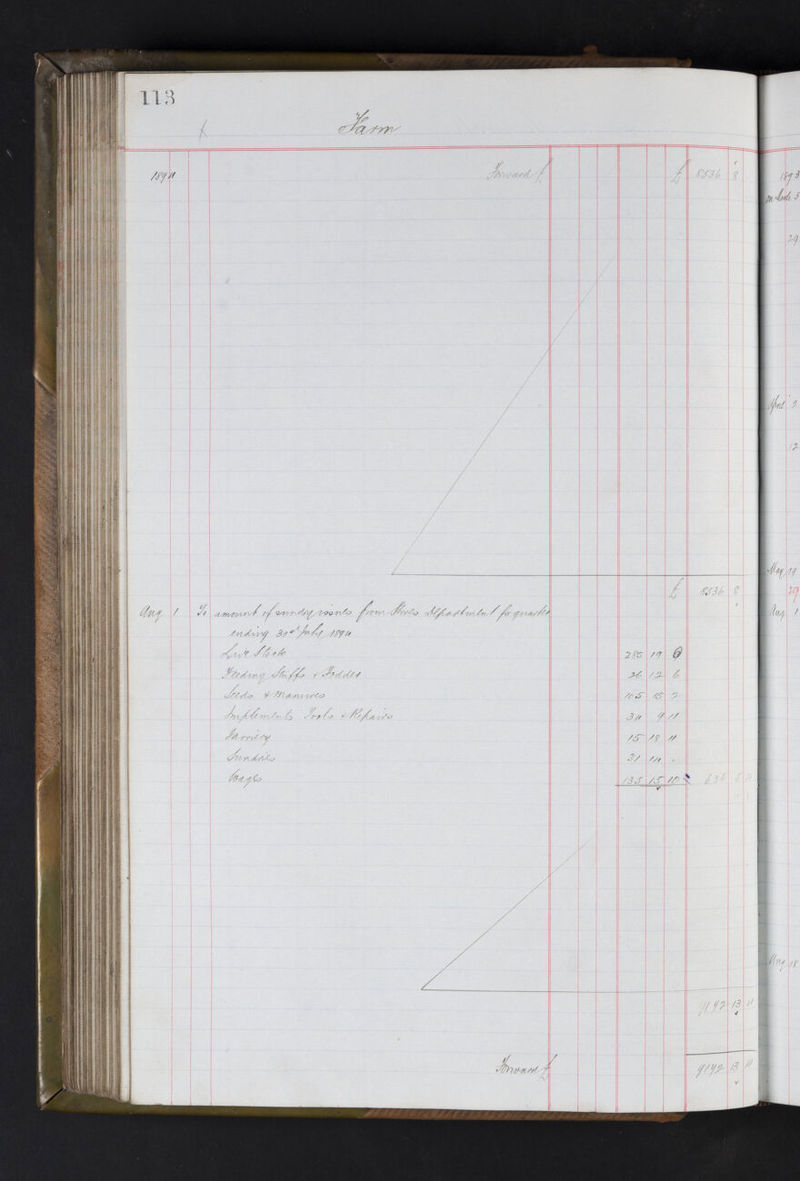 113
Farm
1894 Forward £ £ 8536 8
£ 8536 8
Aug 1 To amount of sundry issues from Stores Department for quarter
ending 30th July 1894
Live Stock 285 19 0
Feeding Stuffs & Fodder 26 12 6
Seeds & Manures 105 15 2
Implements Tools & Repairs 34 9 11
Farriery 15 18 11
Sundries 31 14 -
Wages 135 15 10 636 5
9172 13 11
Forward £ 9172 13 11
1893
29
April 2
12
May 19
29
Aug 1
Aug 18